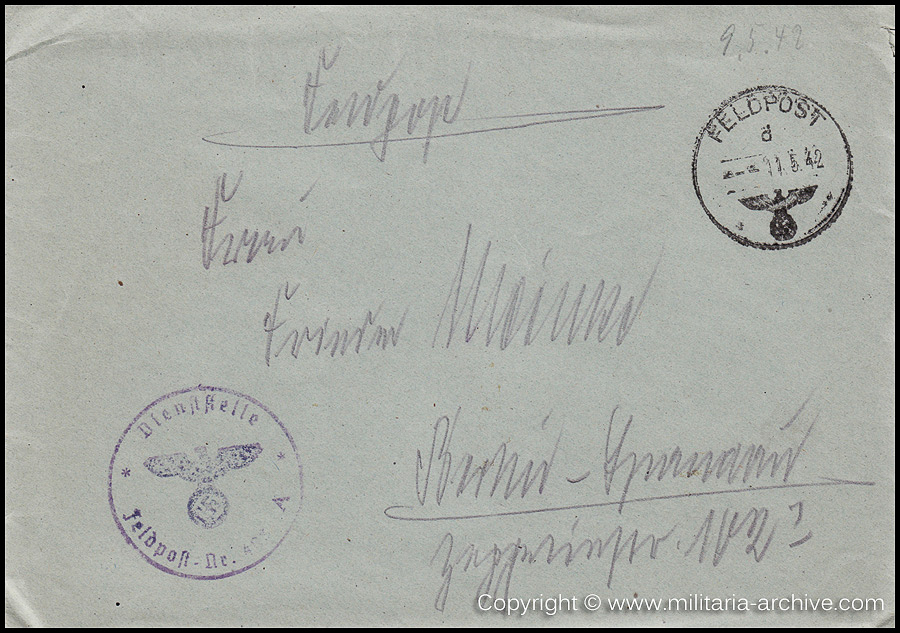 9.5.42
Feldpost
FELDPOST
d
11.5.42
Frau
Frieda Meinke
Dienststelle
* *
Feldpost-Nr. A
Berlin-Spandau
Zeppelinstr. 102
Copyright © www.militaria-archive.com